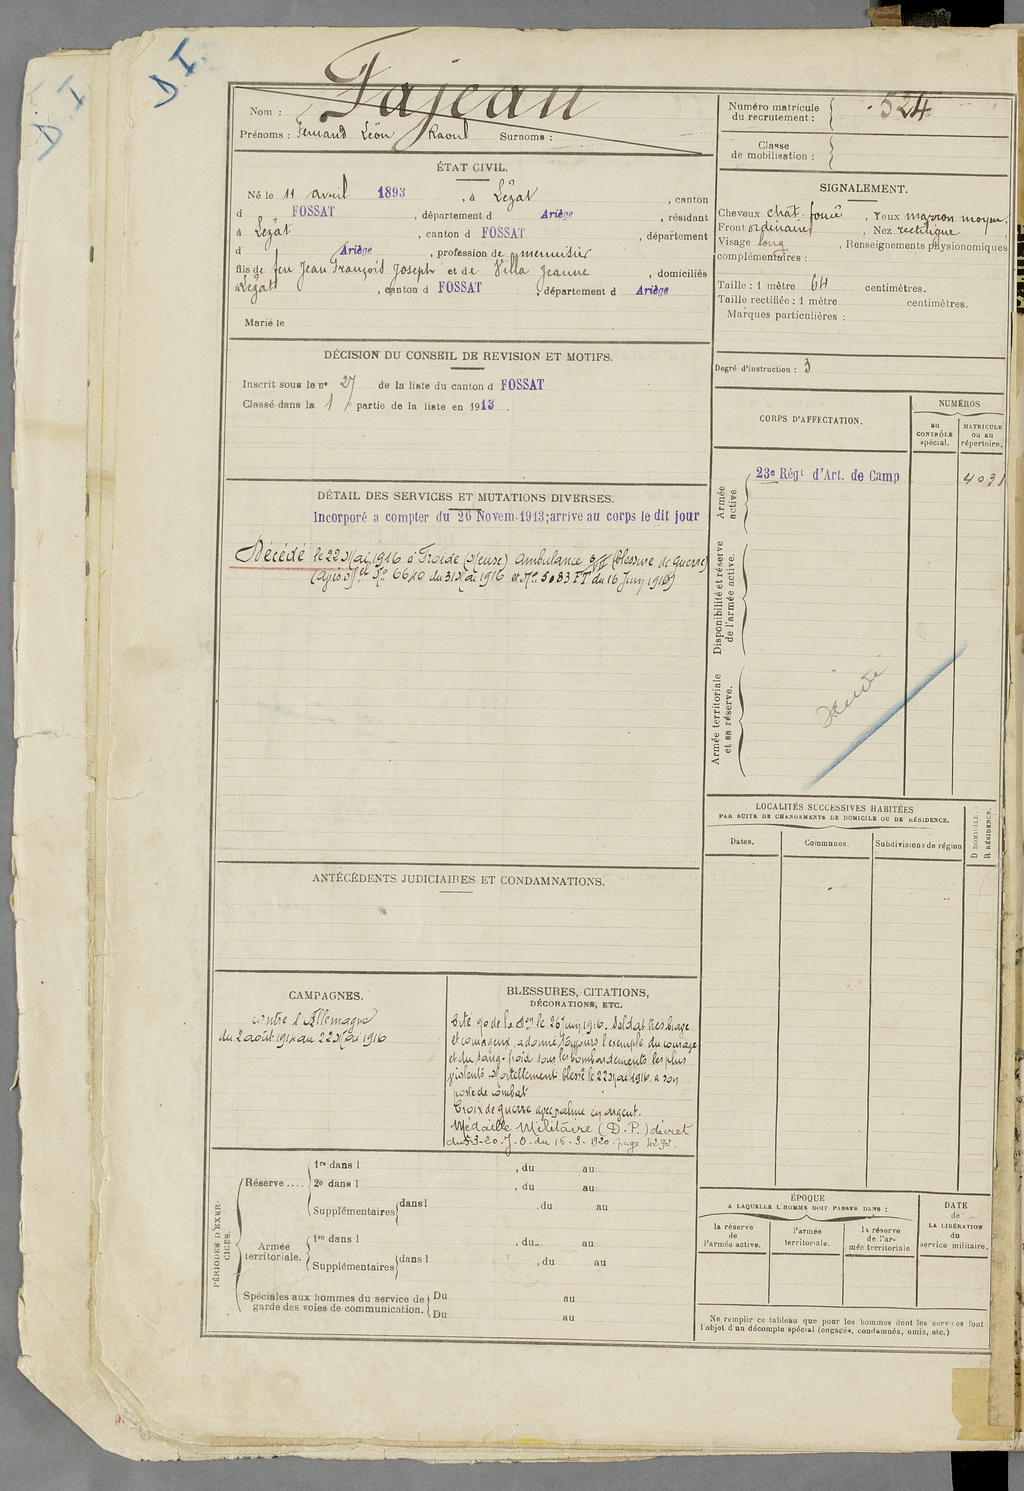 D. I
D. I
Nom : Fajeau
Prénoms : Fernand Léon Raoul Surnoms :
Numéro matricule du recrutement : 524
Classe de mobilisation :
ÉTAT CIVIL.
Né le 11 avril 1893, à Lézat, canton
d FOSSAT, département d Ariège, résidant
à Lézat, canton d FOSSAT, département
d Ariège, profession de menuisier
fils de feu Jean François Joseph et de Villa Jeanne, domiciliés
à Lézat, canton d FOSSAT, département d Ariège
Marié le
SIGNALEMENT.
Cheveux chat. foncé, Yeux marron moyen,
Front ordinaire, Nez rectiligne
Visage long, Renseignements physionomiques
complémentaires :
Taille : 1 mètre 64 centimètres.
Taille rectifiée : 1 mètre centimètres.
Marques particulières :
Degré d'instruction : 3
DÉCISION DU CONSEIL DE REVISION ET MOTIFS.
Inscrit sous le nº 27 de la liste du canton d FOSSAT
Classé dans la 1 partie de la liste en 1913.
DÉTAIL DES SERVICES ET MUTATIONS DIVERSES.
Incorporé a compter du 26 Novem. 1913; arrive au corps le dit jour
Décédé le 22 Mai 1916 à Froide (Meuse) Ambulance (blessure de guerre)
(avis Mel Nº 6640 du 31 Mai 1916 et Nº 5083 FT du 16 Juin 1916)
CORPS D'AFFECTATION.
NUMÉROS
au CONTRÔLE spécial.
MATRICULE ou au répertoire.
Armée active.
23e Régt d'Art. de Camp 4031
Disponibilité et réserve de l'armée active.
Armée territoriale et sa réserve.
LOCALITÉS SUCCESSIVES HABITÉES
PAR SUITE DE CHANGEMENTS DE DOMICILE OU DE RÉSIDENCE.
Dates. Communes. Subdivisions de région
D DOMICILE.
R RÉSIDENCE.
ANTÉCÉDENTS JUDICIAIRES ET CONDAMNATIONS.
CAMPAGNES.
contre l'Allemagne
du 2 août 1914 au 22 Mai 1916
BLESSURES, CITATIONS,
DÉCORATIONS, ETC.
Cité de la le 26 Juin 1916. Soldat très brave
et courageux, a donné toujours l'exemple du courage
et du sang-froid sous les bombardements les plus
violents. Mortellement blessé le 22 Mai 1916 a son
poste de combat
Croix de guerre avec palme en argent.
Médaille Militaire (D. P.) décret
du 5-3-20. J. O. du 16-3-1920. page 4292.
PÉRIODES D'EXERCICES.
Réserve .... 1re dans l , du au
2e dans l , du au
Supplémentaires dans l , du au
Armée territoriale. 1re dans l , du au
Supplémentaires dans l , du au
Spéciales aux hommes du service de garde des voies de communication. Du au
Du au
ÉPOQUE
A LAQUELLE L'HOMME DOIT PASSER DANS :
la réserve de l'armée active.
l'armée territoriale.
la réserve de l'armée territoriale.
DATE de LA LIBÉRATION du service militaire.
Ne remplir ce tableau que pour les hommes dont les services font
l'objet d'un décompte spécial (engagés, condamnés, omis, etc.)